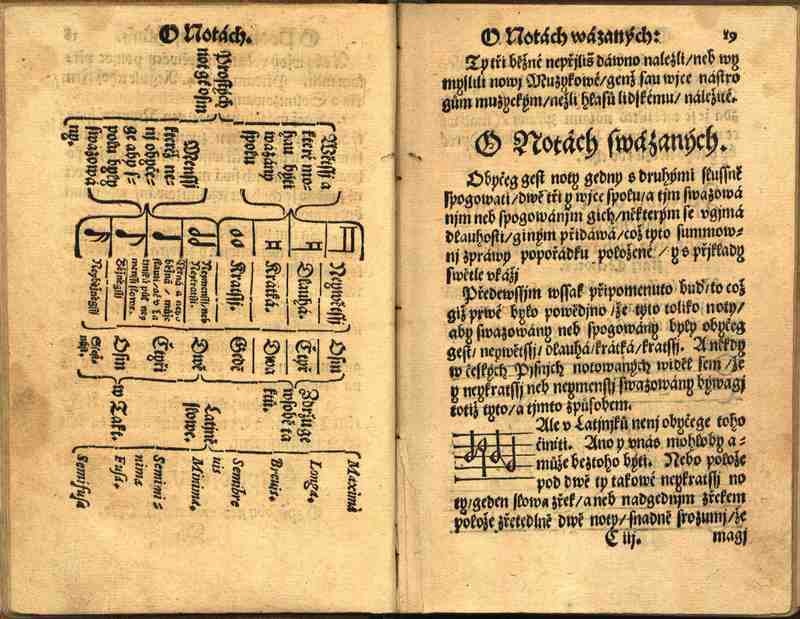 O Notách.
Prostých
not gé osm
Wětssj a
které mo-
hau býti
wázány
spolu
Menssj
kteréž ne-
nj obyče-
ge aby s-
polu byly
swazowá
ny.
Neywětssj
Dlauhá.
Krátká.
Kratssj.
Osm
Čtyř
Dwa
Gedē
Dwě
Čtyři
Osm
Zdržuge
w sobě ta
ktů.
Latjně
slowe.
w Takt.
Maxima
Longa.
Brevis.
Semibre
uis
Minima.
Semimi-
nima
Fusa.
Semifusa
O Notách wázaných: 19
Ty tři běžné nepřjliš dáwno nalezli/neb wy
myslili nowj Muzykowé/genž sau wjce nástro
gům muzyckým/nežli hlasu lidskému/ náležité.
O Notách swázaných.
Obyčeg gest noty gedny s druhými slussně
spogowati/dwě tři y wjce spolu/a tjm swazowá
njm neb spogowánjm gich/některým se vgjmá
dlauhosti/giným přidáwá/což tyto summow-
nj zpráwy popořádku položené/ y s přjklady
swětle vkážj
Předewssjm wssak připomenuto buď/to což
giž prwé bylo powědjno/že tyto toliko noty/
aby swazowány neb spogowány byly obyčeg
gest/neywětssj/dlauhá/krátká/kratssj. A někdy
w českých Pjsnjch notowaných widěl sem/že
y neykratssj neb neymenssj swazowány býwagj
totiž tyto/a tjmto způsobem.
Ale v Latjnjků nenj obyčege toho
činiti. Ano y vnás mohloby a-
může beztoho býti. Nebo polože
pod dwě ty takowé neykratssj no
ty/geden slowa zřek/a neb nadgednjm zřekem
polože zřetedlně dwě noty/snadně srozumj/že
C iij. magj